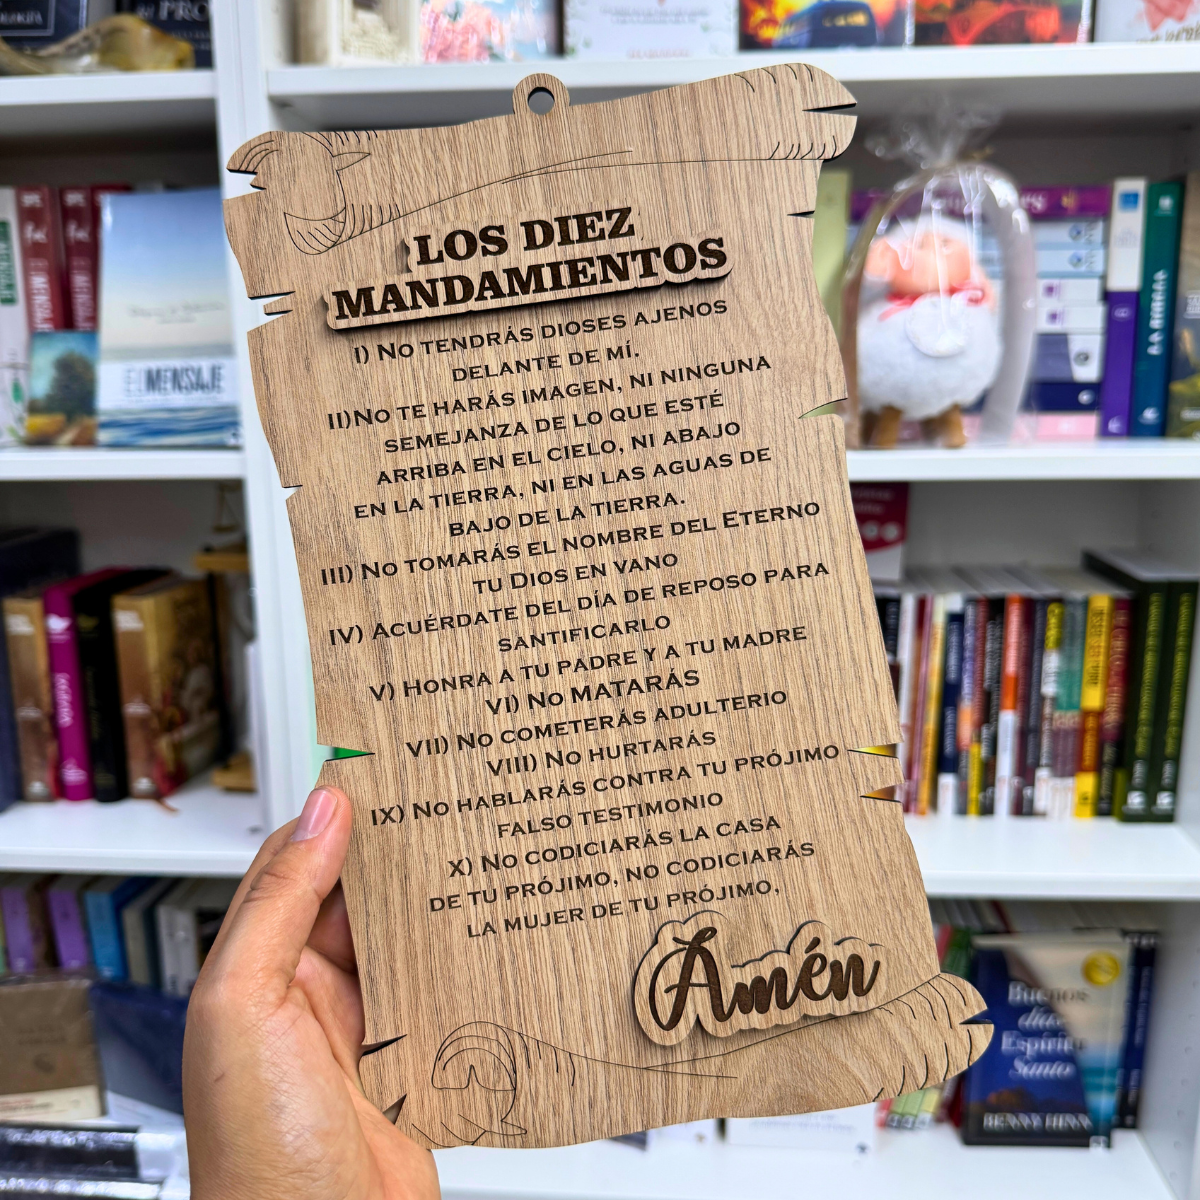 LOS DIEZ
MANDAMIENTOS
I) No TENDRÁS DIOSES AJENOS
DELANTE DE MÍ.
II)No TE HARÁS IMAGEN, NI NINGUNA
SEMEJANZA DE LO QUE ESTÉ
ARRIBA EN EL CIELO, NI ABAJO
EN LA TIERRA, NI EN LAS AGUAS DE
BAJO DE LA TIERRA.
III) No TOMARÁS EL NOMBRE DEL ETERNO
TU DIOS EN VANO
IV) ACUÉRDATE DEL DÍA DE REPOSO PARA
SANTIFICARLO
V) HONRA A TU PADRE Y A TU MADRE
VI) No MATARÁS
VII) No COMETERÁS ADULTERIO
VIII) No HURTARÁS
IX) No HABLARÁS CONTRA TU PRÓJIMO
FALSO TESTIMONIO
X) No CODICIARÁS LA CASA
DE TU PRÓJIMO, NO CODICIARÁS
LA MUJER DE TU PRÓJIMO,
Ámén
EL MENSAJE
Buenos
días
Espíritu
Santo
BENNY HINN